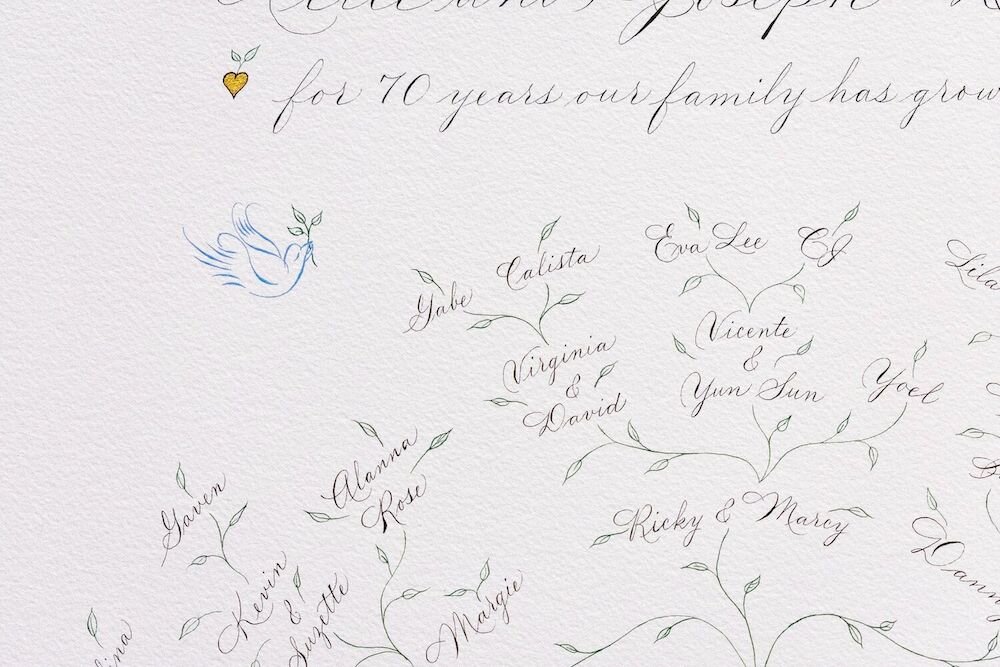 Joseph
for 70 years our family has grow
Eva Lee
CJ
Calista
Gabe
Lila
Vicente
&
Yun Sun
Virginia
&
David
Yael
Alanna
Rose
Gaven
Ricky & Marcy
Kevin
&
Suzette
Margie